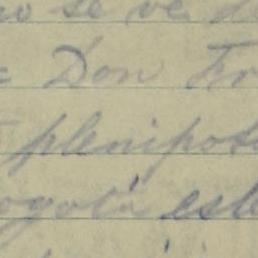 se ve
Don Fr
plenipote
ogotá est